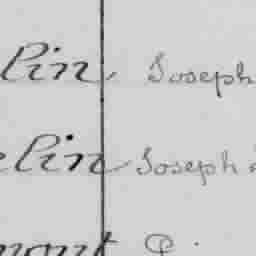 lin, Joseph
elin Joseph
mont C.